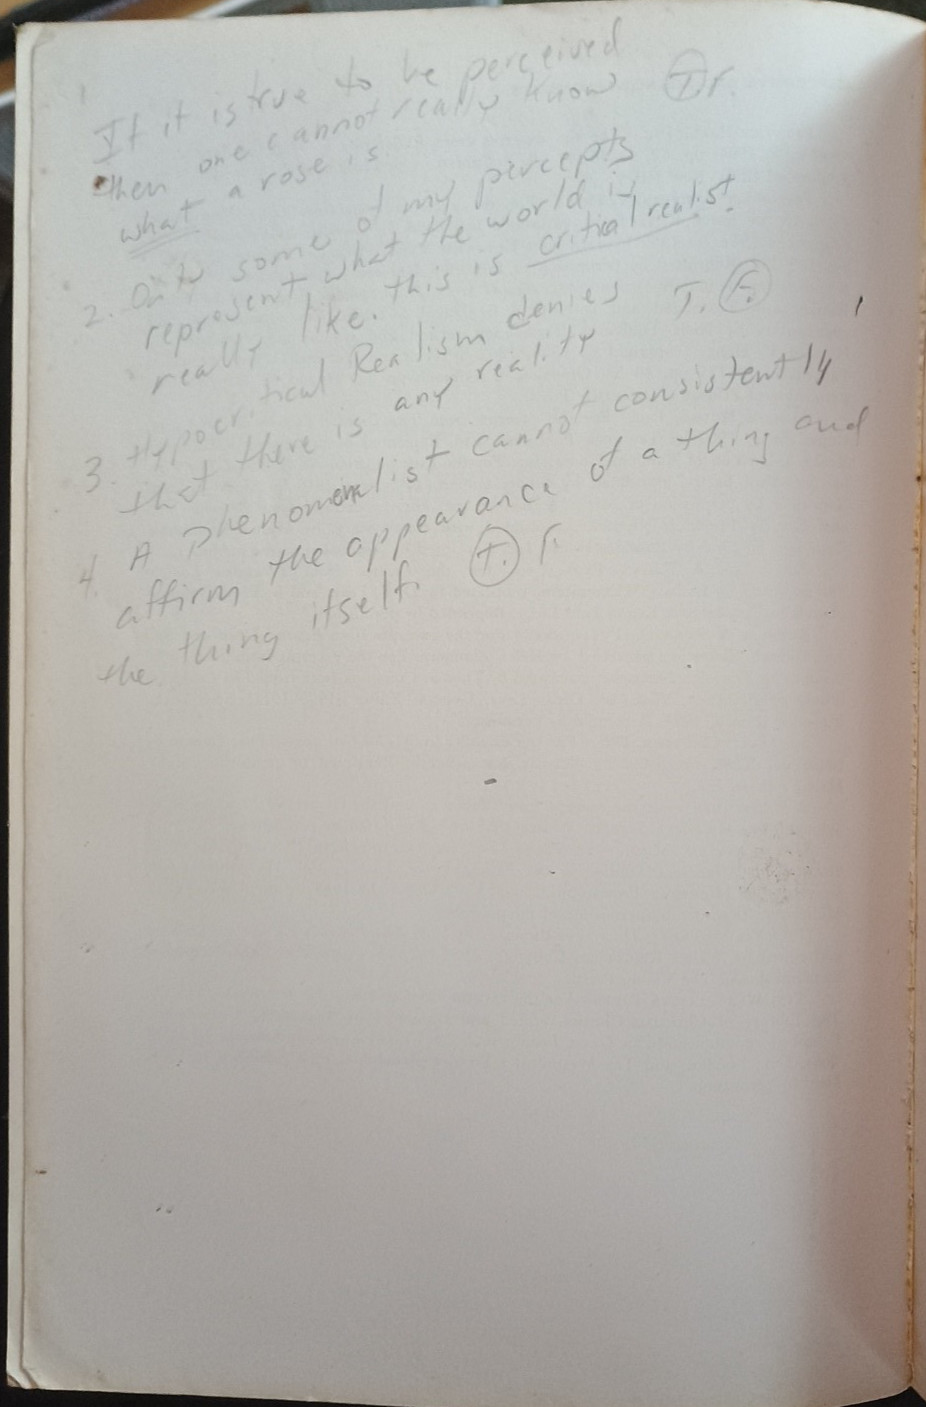 1
If it is true to be perceived
then one cannot really know T. F.
what a rose is
2. Only some of my percepts
represent what the world is
really like. this is critical realist.
3. Hypocritical Realism denies T. F.
that there is any reality
4. A Phenomenalist cannot consistently
affirm the appearance of a thing and
the thing itself. T. F.